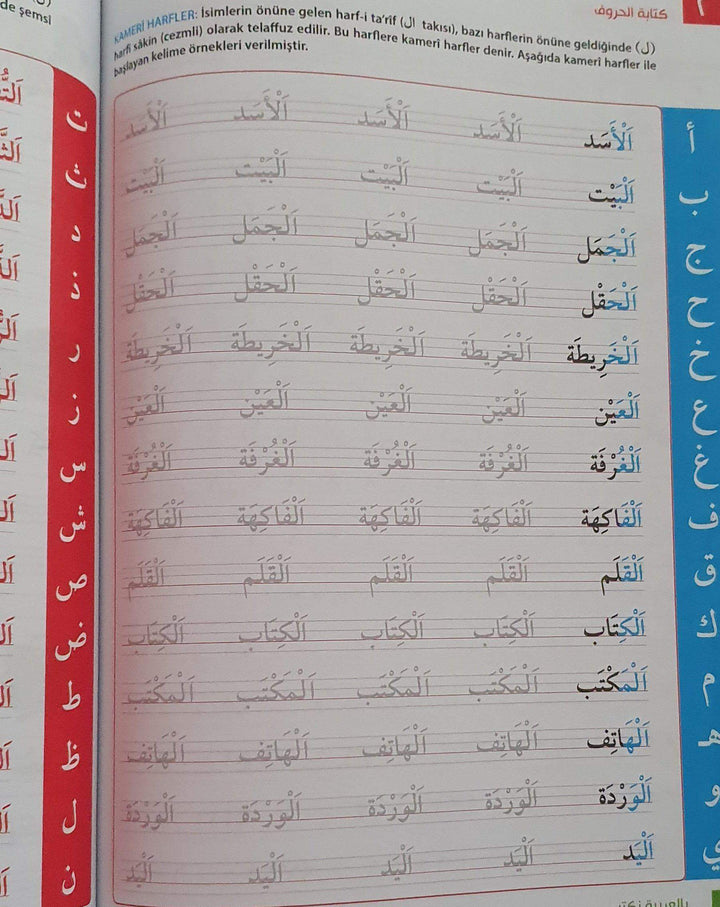 de şemsi
كتابة الحروف
KAMERİ HARFLER: İsimlerin önüne gelen harf-i ta'rîf (ال takısı), bazı harflerin önüne geldiğinde (ل)
harfi sâkin (cezmli) olarak telaffuz edilir. Bu harflere kamerî harfler denir. Aşağıda kamerî harfler ile
başlayan kelime örnekleri verilmiştir.
أ اَلْأَسَد اَلْأَسَد اَلْأَسَد اَلْأَسَد اَلْأَسَد
ب اَلْبَيْت اَلْبَيْت اَلْبَيْت اَلْبَيْت اَلْبَيْت
ج اَلْجَمَل اَلْجَمَل اَلْجَمَل اَلْجَمَل اَلْجَمَل
ح اَلْحَقْل اَلْحَقْل اَلْحَقْل اَلْحَقْل اَلْحَقْل
خ اَلْخَرِيطَة اَلْخَرِيطَة اَلْخَرِيطَة اَلْخَرِيطَة اَلْخَرِيطَة
ع اَلْعَيْن اَلْعَيْن اَلْعَيْن اَلْعَيْن اَلْعَيْن
غ اَلْغُرْفَة اَلْغُرْفَة اَلْغُرْفَة اَلْغُرْفَة اَلْغُرْفَة
ف اَلْفَاكِهَة اَلْفَاكِهَة اَلْفَاكِهَة اَلْفَاكِهَة اَلْفَاكِهَة
ق اَلْقَلَم اَلْقَلَم اَلْقَلَم اَلْقَلَم اَلْقَلَم
ك اَلْكِتَاب اَلْكِتَاب اَلْكِتَاب اَلْكِتَاب اَلْكِتَاب
م اَلْمَكْتَب اَلْمَكْتَب اَلْمَكْتَب اَلْمَكْتَب اَلْمَكْتَب
هـ اَلْهَاتِف اَلْهَاتِف اَلْهَاتِف اَلْهَاتِف اَلْهَاتِف
و اَلْوَرْدَة اَلْوَرْدَة اَلْوَرْدَة اَلْوَرْدَة اَلْوَرْدَة
ي اَلْيَد اَلْيَد اَلْيَد اَلْيَد اَلْيَد
ت
ث
د
ذ
ر
ز
س
ش
ص
ض
ط
ظ
ل
ن